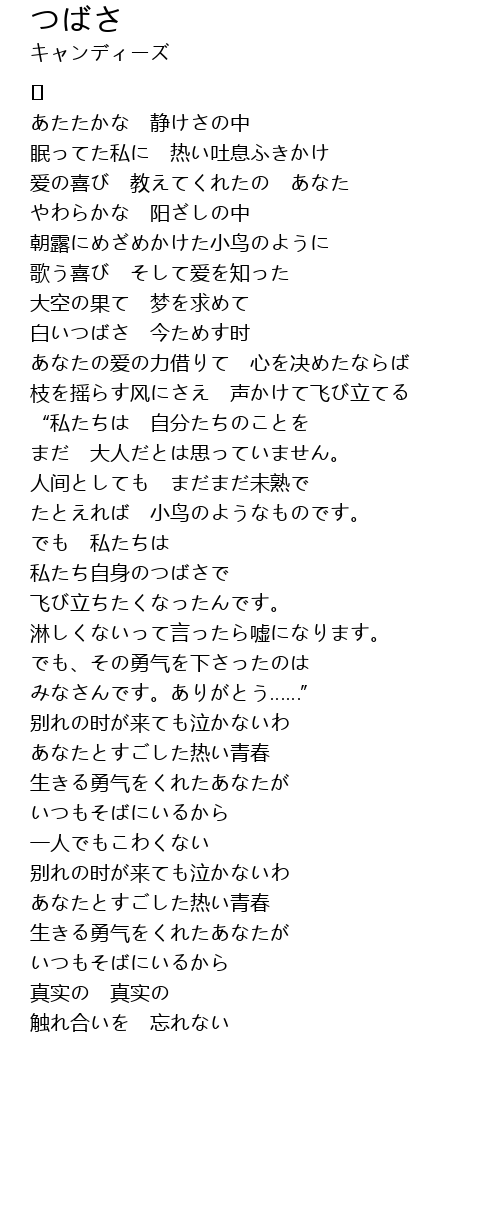 つばさ
キャンディーズ
あたたかな　静けさの中
眠ってた私に　热い吐息ふきかけ
爱の喜び　教えてくれたの　あなた
やわらかな　阳ざしの中
朝露にめざめかけた小鸟のように
歌う喜び　そして爱を知った
大空の果て　梦を求めて
白いつばさ　今ためす时
あなたの爱の力借りて　心を决めたならば
枝を摇らす风にさえ　声かけて飞び立てる
“私たちは　自分たちのことを
まだ　大人だとは思っていません。
人间としても　まだまだ未熟で
たとえれば　小鸟のようなものです。
でも　私たちは
私たち自身のつばさで
飞び立ちたくなったんです。
淋しくないって言ったら嘘になります。
でも、その勇气を下さったのは
みなさんです。ありがとう……”
别れの时が来ても泣かないわ
あなたとすごした热い青春
生きる勇气をくれたあなたが
いつもそばにいるから
一人でもこわくない
别れの时が来ても泣かないわ
あなたとすごした热い青春
生きる勇气をくれたあなたが
いつもそばにいるから
真实の　真实の
触れ合いを　忘れない